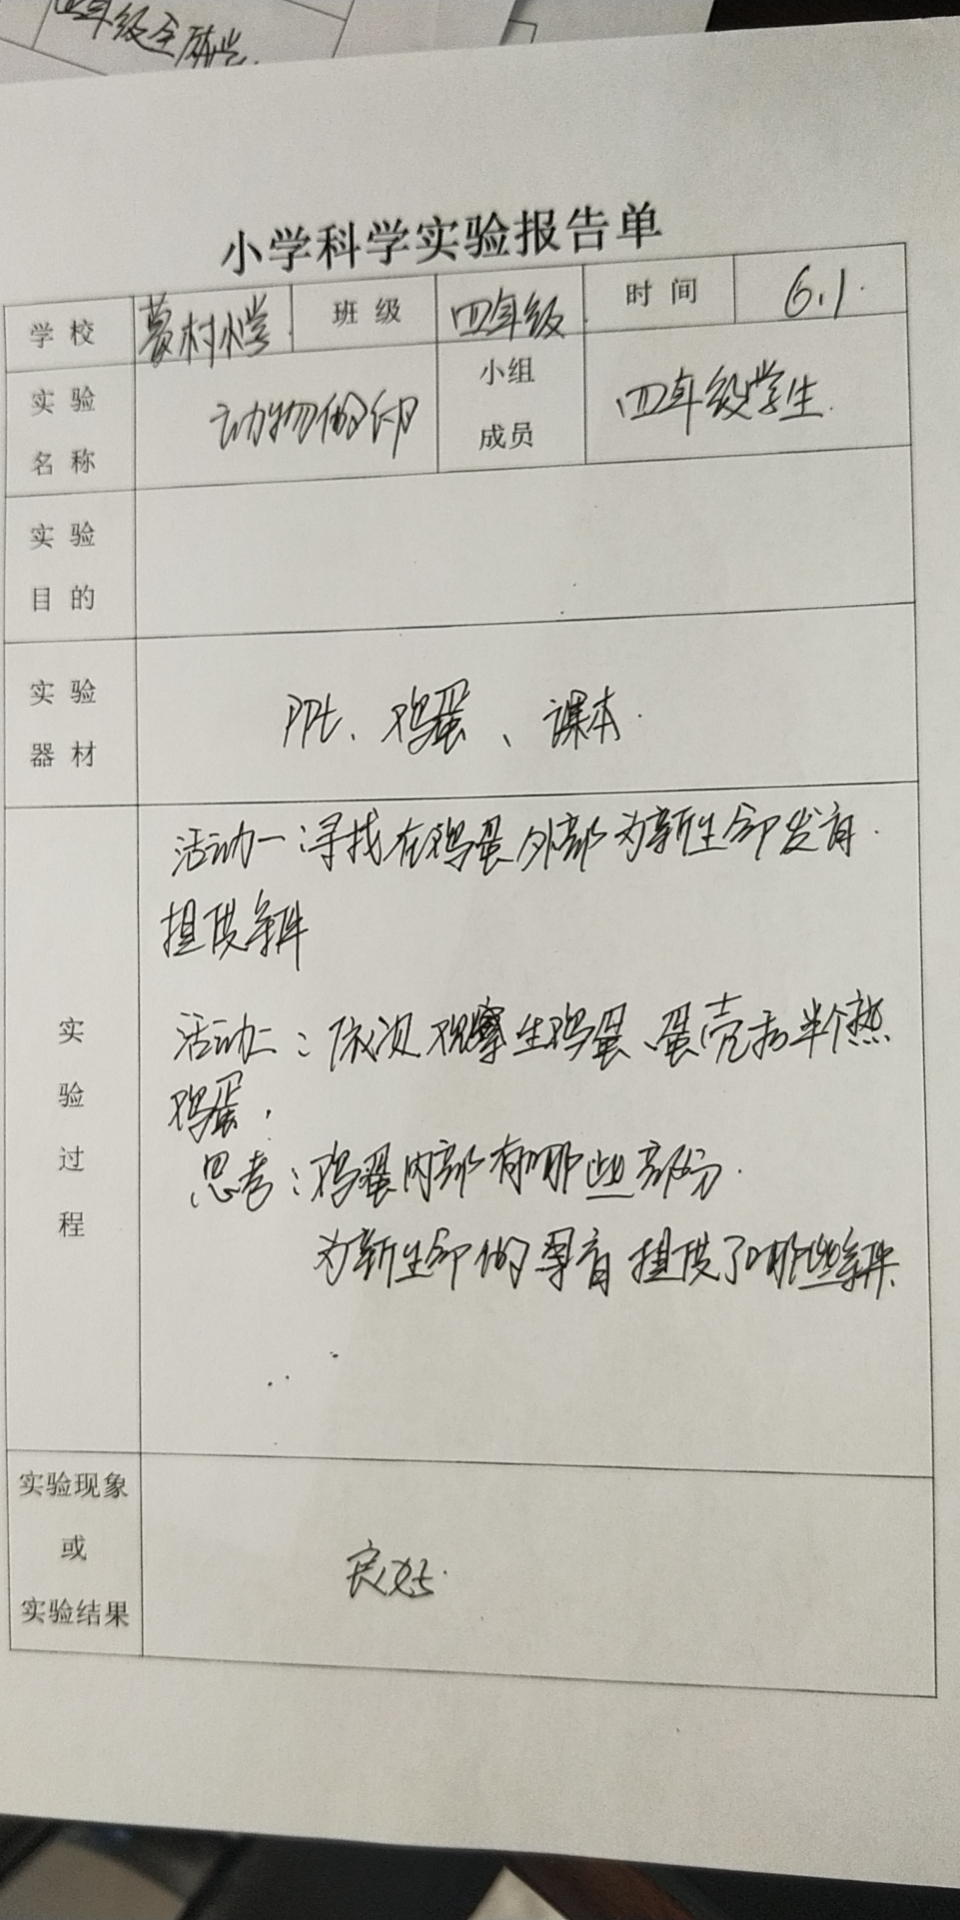 四年级全体学
小学科学实验报告单
学校 村小学 班级 四年级 时间 6.1
实验名称 动物的卵 小组成员 四年级学生
实验目的
实验器材 PPt、鸡蛋、课本.
实验过程
活动一:寻找在鸡蛋外部为新生命发育
提供条件
活动二:依次观察生鸡蛋、蛋壳和半个熟
鸡蛋.
思考:鸡蛋内部有哪些部分.
为新生命的孕育提供了哪些条件.
实验现象
或
实验结果
良好.